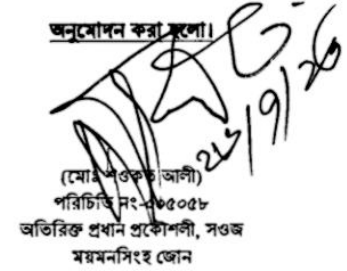 অনুমোদন করা হলো।
২৮/৭/২৫
(মোঃ শওকত আলী)
পরিচিতি নং-
অতিরিক্ত প্রধান প্রকৌশলী, সওজ
ময়মনসিংহ জোন